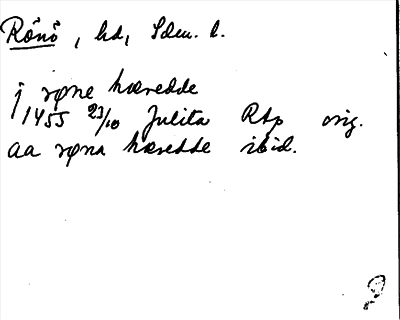 Rönö, hd, Sdm. l.
j røne hæredde
1455 23/10 Julita RAp orig.
aa røna hæredde ibid.